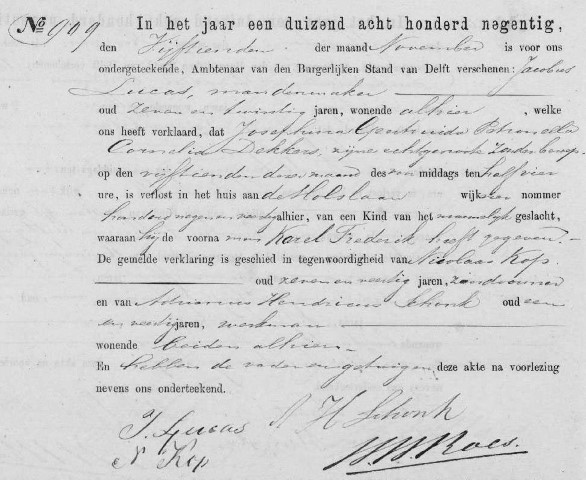 No 909 In het jaar een duizend acht honderd negentig,
den Vijftienden der maand November is voor ons
ondergeteekende, Ambtenaar van den Burgerlijken Stand van Delft verschenen: Jacobus
Lucas, mandenmaker
oud zeven en twintig jaren, wonende alhier, welke
ons heeft verklaard, dat Josephina Gertruida Petronella
Cornelia Dekkers, zijne echtgenoote zonder beroep
op den vijftienden dezer maand des middags ten half vier
ure, is verlost in het huis aan de Molslaan wijk nommer
honderd negen en alhier, van een Kind van het mannelijk geslacht,
waaraan hij de voornamen Karel Frederik heeft gegeven.
De gemelde verklaring is geschied in tegenwoordigheid van Nicolaas Kop
oud zeven en veertig jaren,
en van Adrianus Hendricus Schonk oud een
en veertig jaren, werkman
wonende beiden alhier
En hebben de vader en getuigen, deze akte na voorlezing
nevens ons onderteekend.
J. Lucas A H Schonk
N Kop